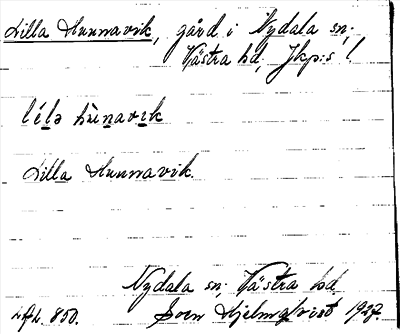 Lilla Hunnavik, gård i Nydala sn;
Västra hd; Jkp:s l.
lìla hùnavik
Lilla Hunnavik
Nydala sn; Västra hd
850. Sven Hjelmqvist 1927.